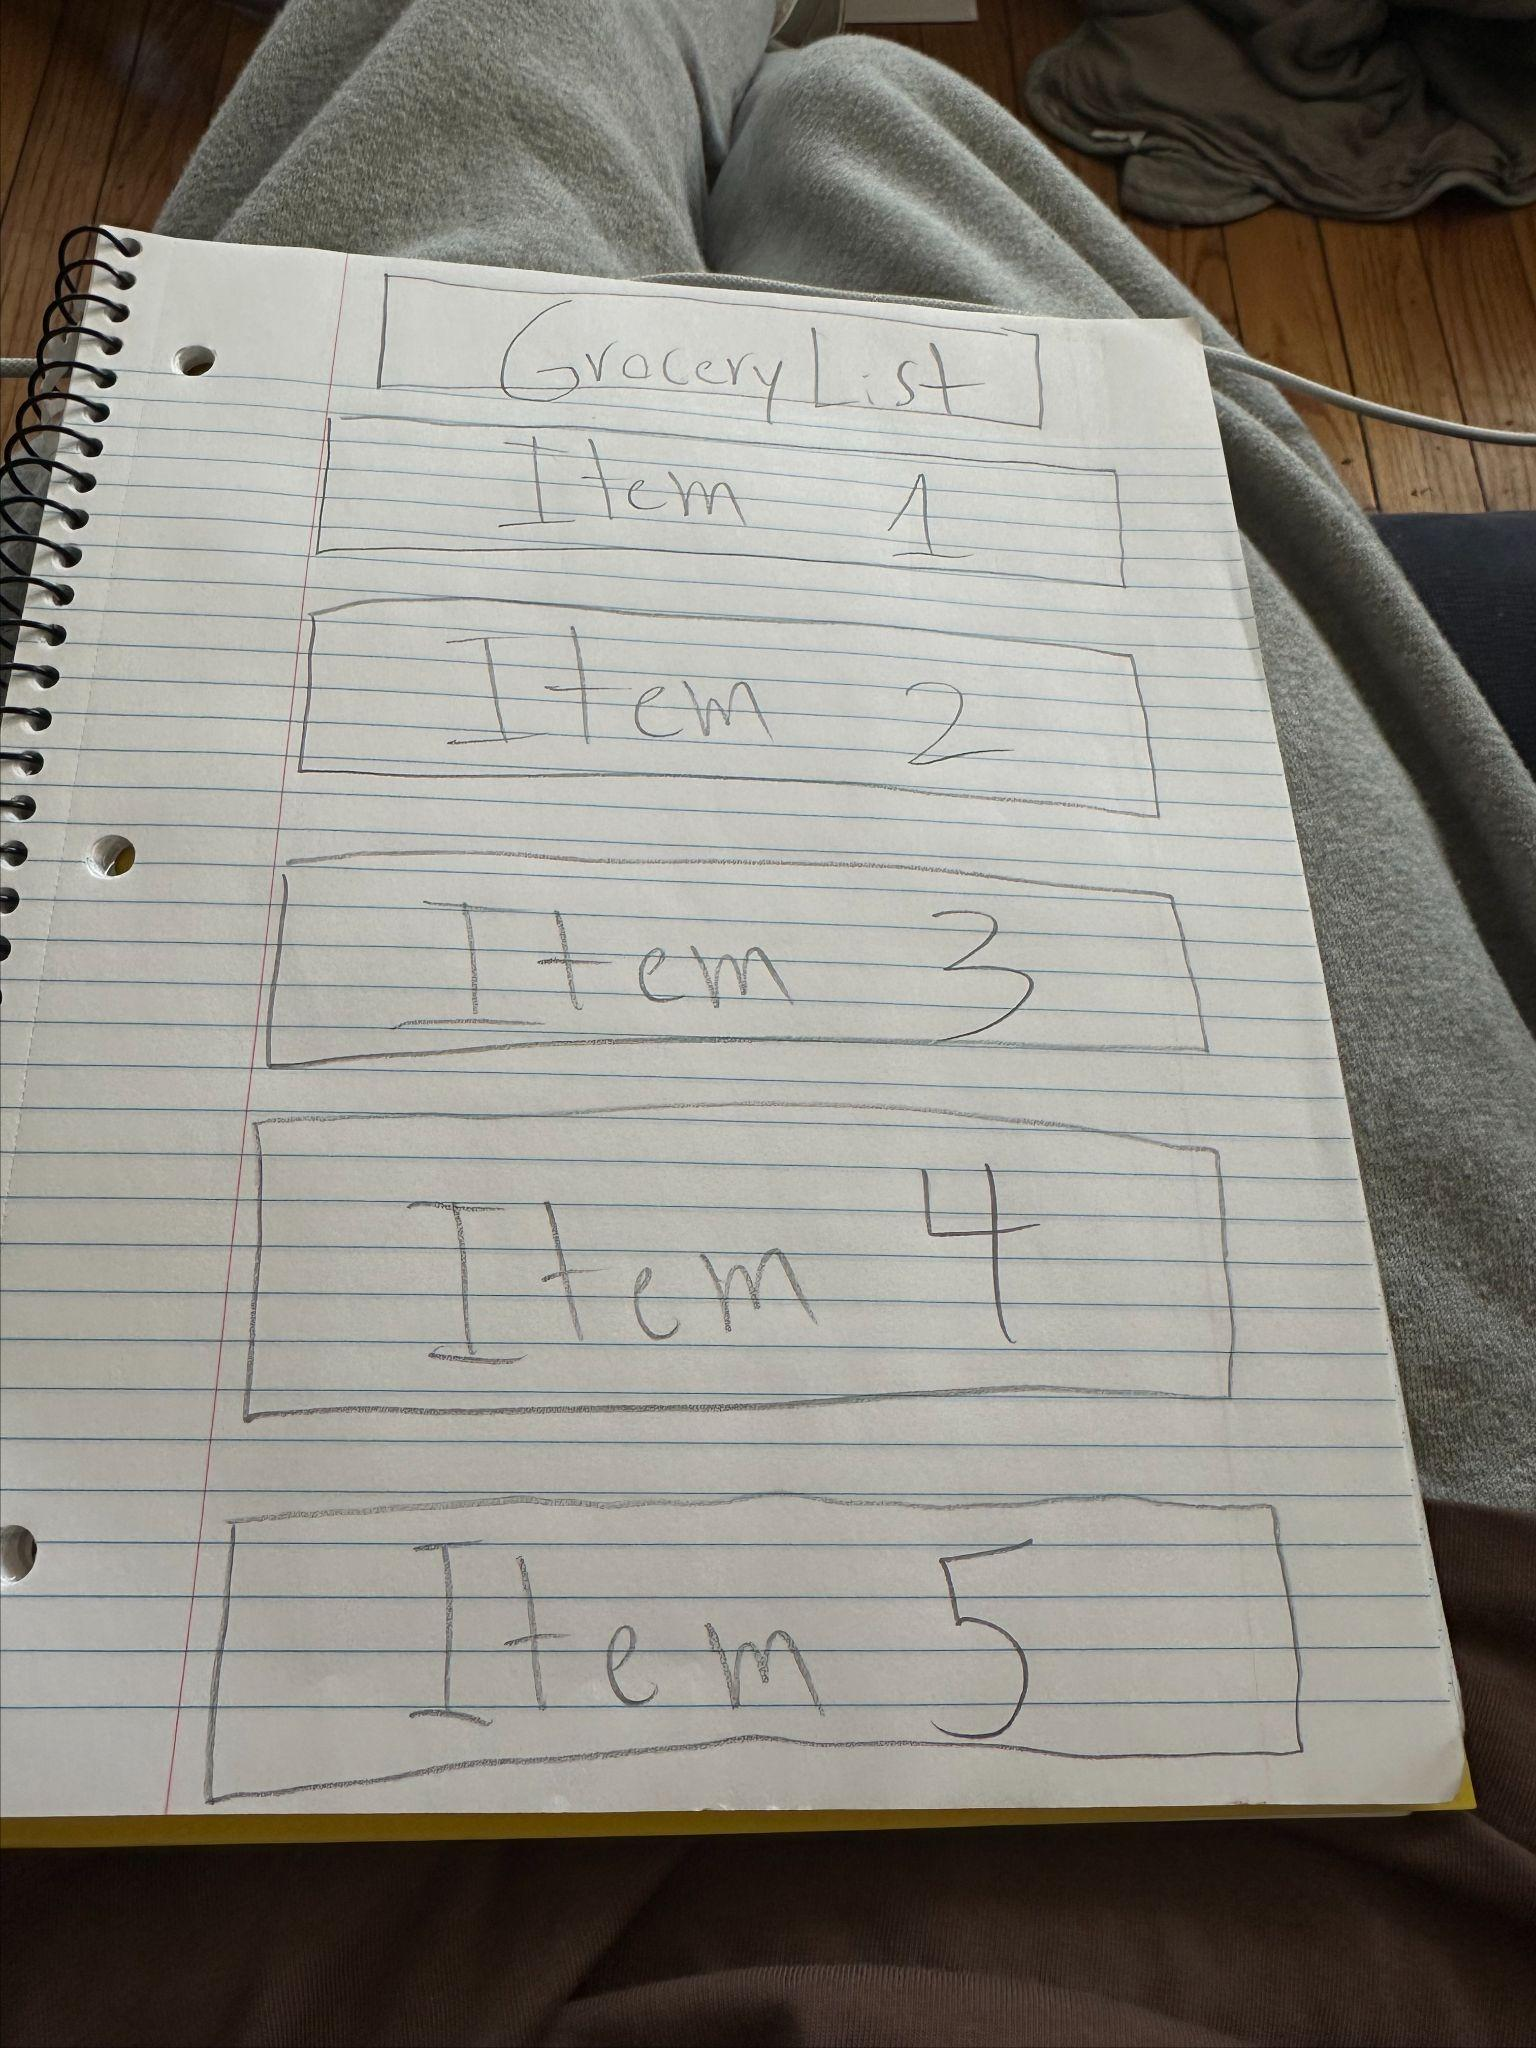 Grocery List
Item 1
Item 2
Item 3
Item 4
Item 5